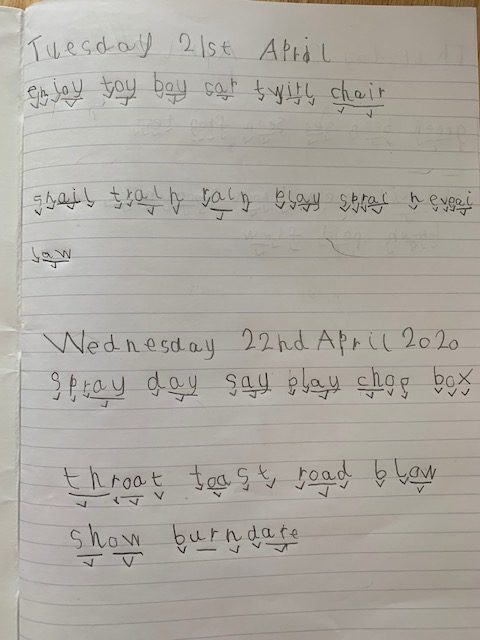 Tuesday 21st April
enjoy toy boy car twirl chair
snail train rain play
law
Wednesday 22nd April 2020
Spray day say play chop box
throat toast road blow
show burn dare